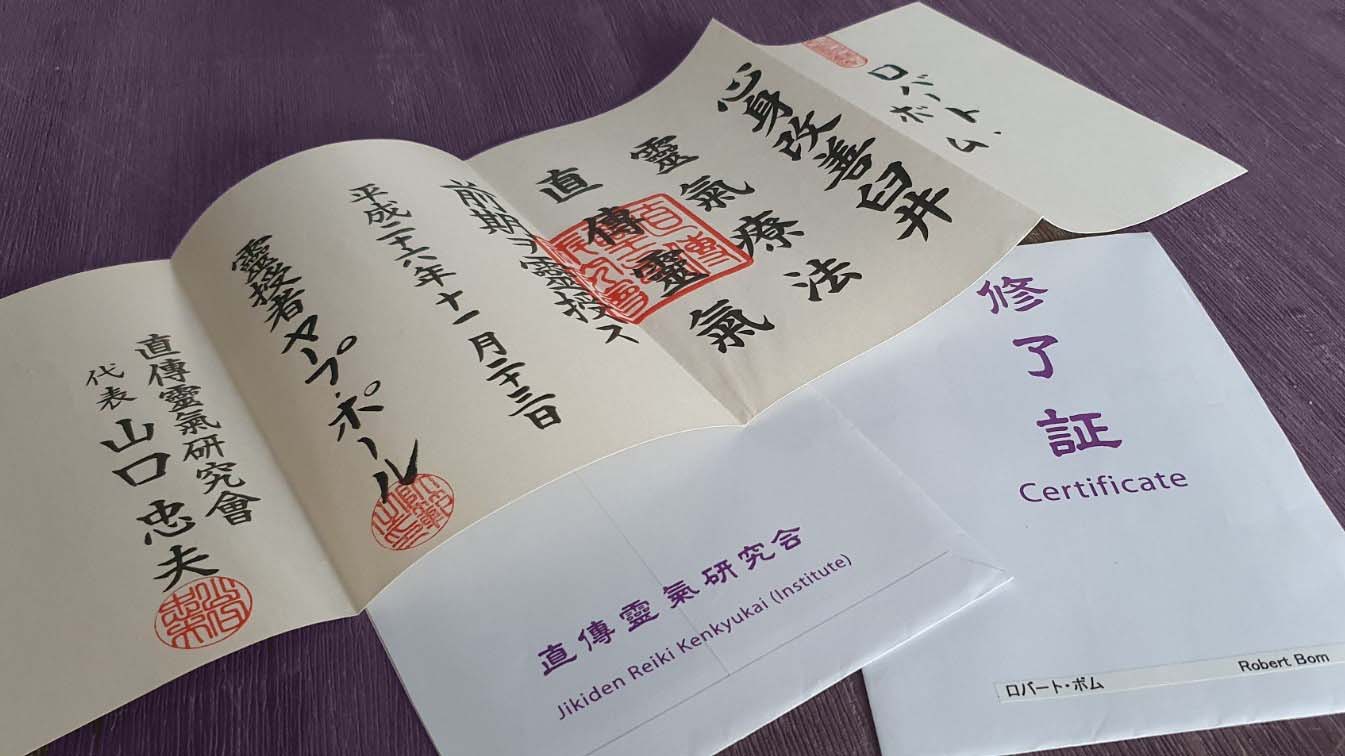 ロバート
ボム
心身改善臼井
靈氣療法
直傳靈氣
前期ヲ靈授ス
平成二十六年十一月二十三日
靈授者マープ・ポール
直傳靈氣研究會
代表 山口忠夫
修了証
Certificate
直傳靈氣研究会
Jikiden Reiki Kenkyukai (Institute)
ロバート・ボム
Robert Bom